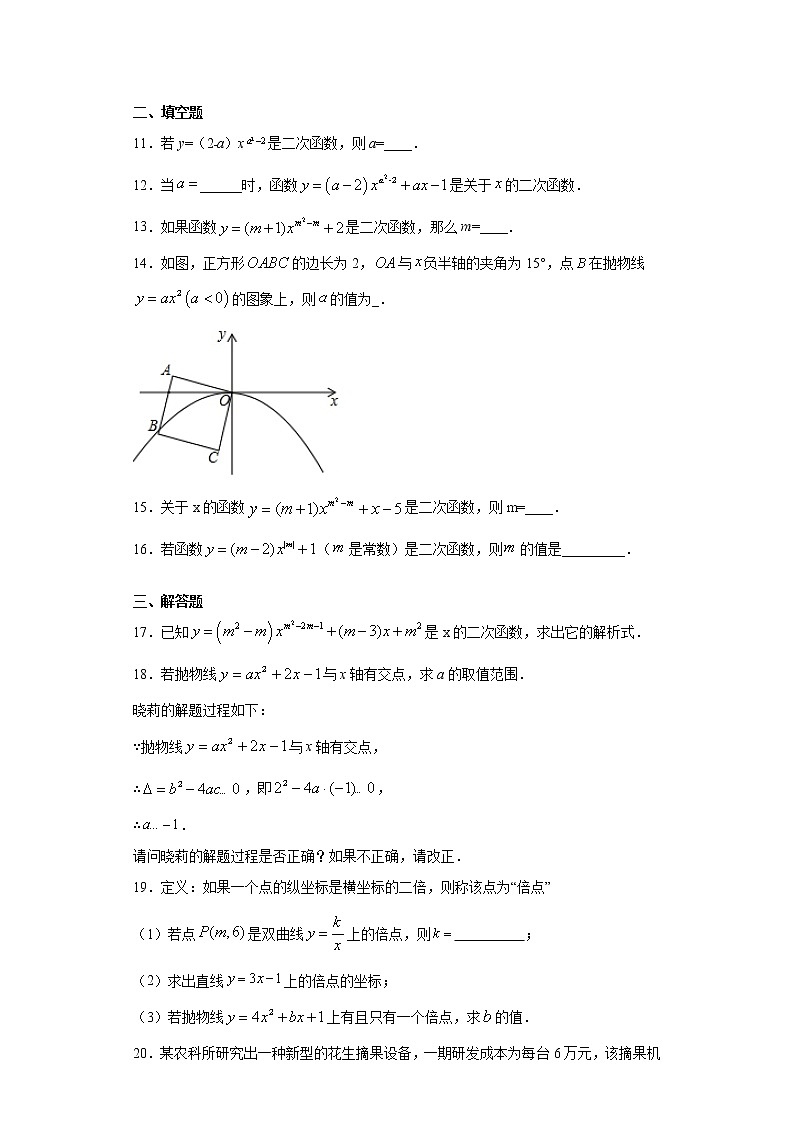 二、填空题
11．若 y=（2-a）x^{a²−2} 是二次函数，则 a=____．
12．当 a = ______时，函数 y = (a−2) x^{a²-2} + ax −1是关于 x 的二次函数．
13．如果函数 y = (m+1)x^{m²−m} + 2是二次函数，那么 m=____．
14．如图，正方形 OABC 的边长为 2，OA 与 x 负半轴的夹角为 15°，点 B 在抛物线
y = ax² (a < 0) 的图象上，则 a 的值为_．
y
A
O
x
B
C
15．关于 x 的函数 y = (m+1)x^{m²−m} + x − 5是二次函数，则 m=____．
16．若函数 y = (m−2)x^{|m|} +1（m 是常数）是二次函数，则 m 的值是_________．
三、解答题
17．已知 y = (m² − m) x^{m²−2m−1} + (m−3)x + m² 是 x 的二次函数，求出它的解析式．
18．若抛物线 y = ax² + 2x −1与 x 轴有交点，求 a 的取值范围．
晓莉的解题过程如下：
∵抛物线 y = ax² + 2x −1与 x 轴有交点，
∴Δ = b² − 4ac… 0，即 2² − 4a·(−1)… 0，
∴a… −1．
请问晓莉的解题过程是否正确？如果不正确，请改正．
19．定义：如果一个点的纵坐标是横坐标的二倍，则称该点为“倍点”
（1）若点 P(m,6) 是双曲线 y = k/x 上的倍点，则 k = __________；
（2）求出直线 y = 3x −1 上的倍点的坐标；
（3）若抛物线 y = 4x² + bx +1上有且只有一个倍点，求 b 的值．
20．某农科所研究出一种新型的花生摘果设备，一期研发成本为每台 6 万元，该摘果机